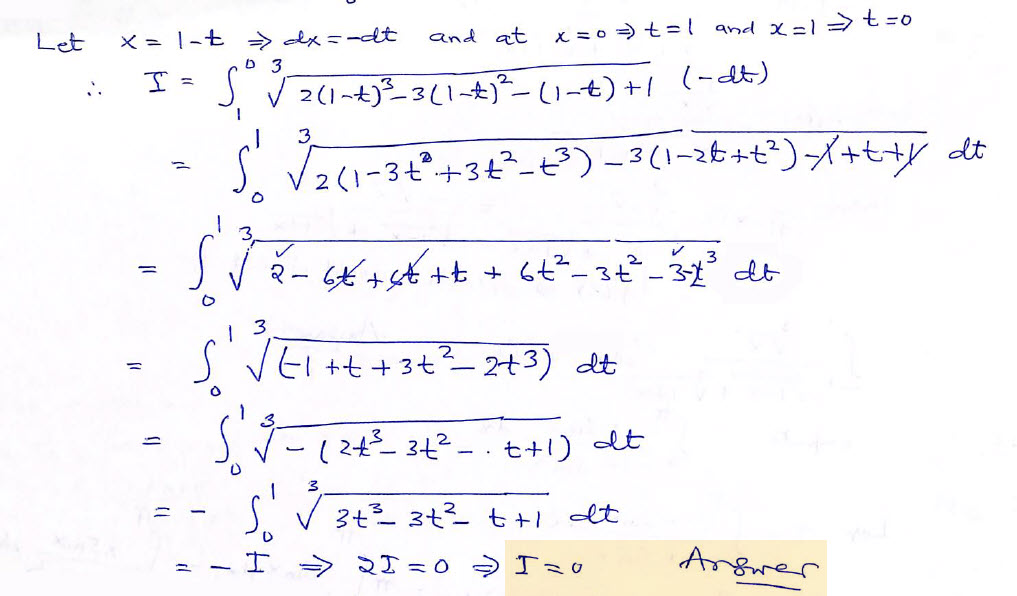 Let x = 1-t ⇒ dx = -dt and at x=0 ⇒ t=1 and x=1 ⇒ t=0
∴ I = ∫₁⁰ ∛(2(1-t)³-3(1-t)²-(1-t)+1) (-dt)
= ∫₀¹ ∛(2(1-3t+3t²-t³)-3(1-2t+t²)-1+t+1) dt
= ∫₀¹ ∛(2-6t+6t+t+6t²-3t²-3-t³) dt
= ∫₀¹ ∛(-1+t+3t²-2t3) dt
= ∫₀¹ ∛(-(2t³-3t²-.t+1)) dt
= - ∫₀¹ ∛(3t³-3t²-t+1) dt
= - I ⇒ 2I=0 ⇒ I=0 Answer